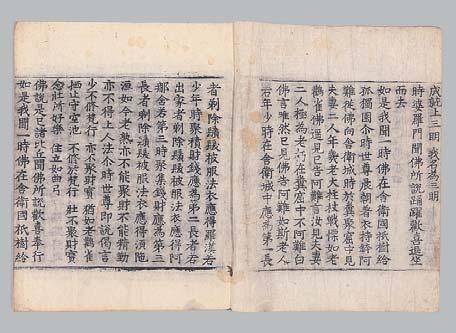 成就上三明 我名為三明
時婆羅門聞佛所說踊躍歡喜從坐
而去
如是我聞一時佛在舍衛國祇樹給
孤獨園介時世尊晨朝著衣持鉢阿
難從佛向舍衛城時於糞窟中見
夫妻二人年衰老大柱杖戰慄如老
鸛雀佛遙見已告阿難言汝見夫妻
二人極為老朽在糞窟中不阿難白
佛言唯然已見佛告阿難如斯老人
若年少時在舍衛城中應為第一長
者剃除鬚髮被服法衣應得羅漢若
少年時聚積財錢應為第二長者若
出家者剃除鬚髮被服法衣應得阿
那含若第三時聚集錢財應為第三
長者剃除鬚髮被服法衣應得須陁
洹如今老熟亦不能聚財不能精勤
亦不得上人法介時世尊即說偈言
少不修梵行 亦不聚財寶 猶如老鸛雀
栖止守空池 不修於梵行 壯不聚財寶
念壯所好樂 住立如曲弓
佛說是已諸比丘聞佛所說歡喜奉行
如是我聞一時佛在舍衛國祇樹給